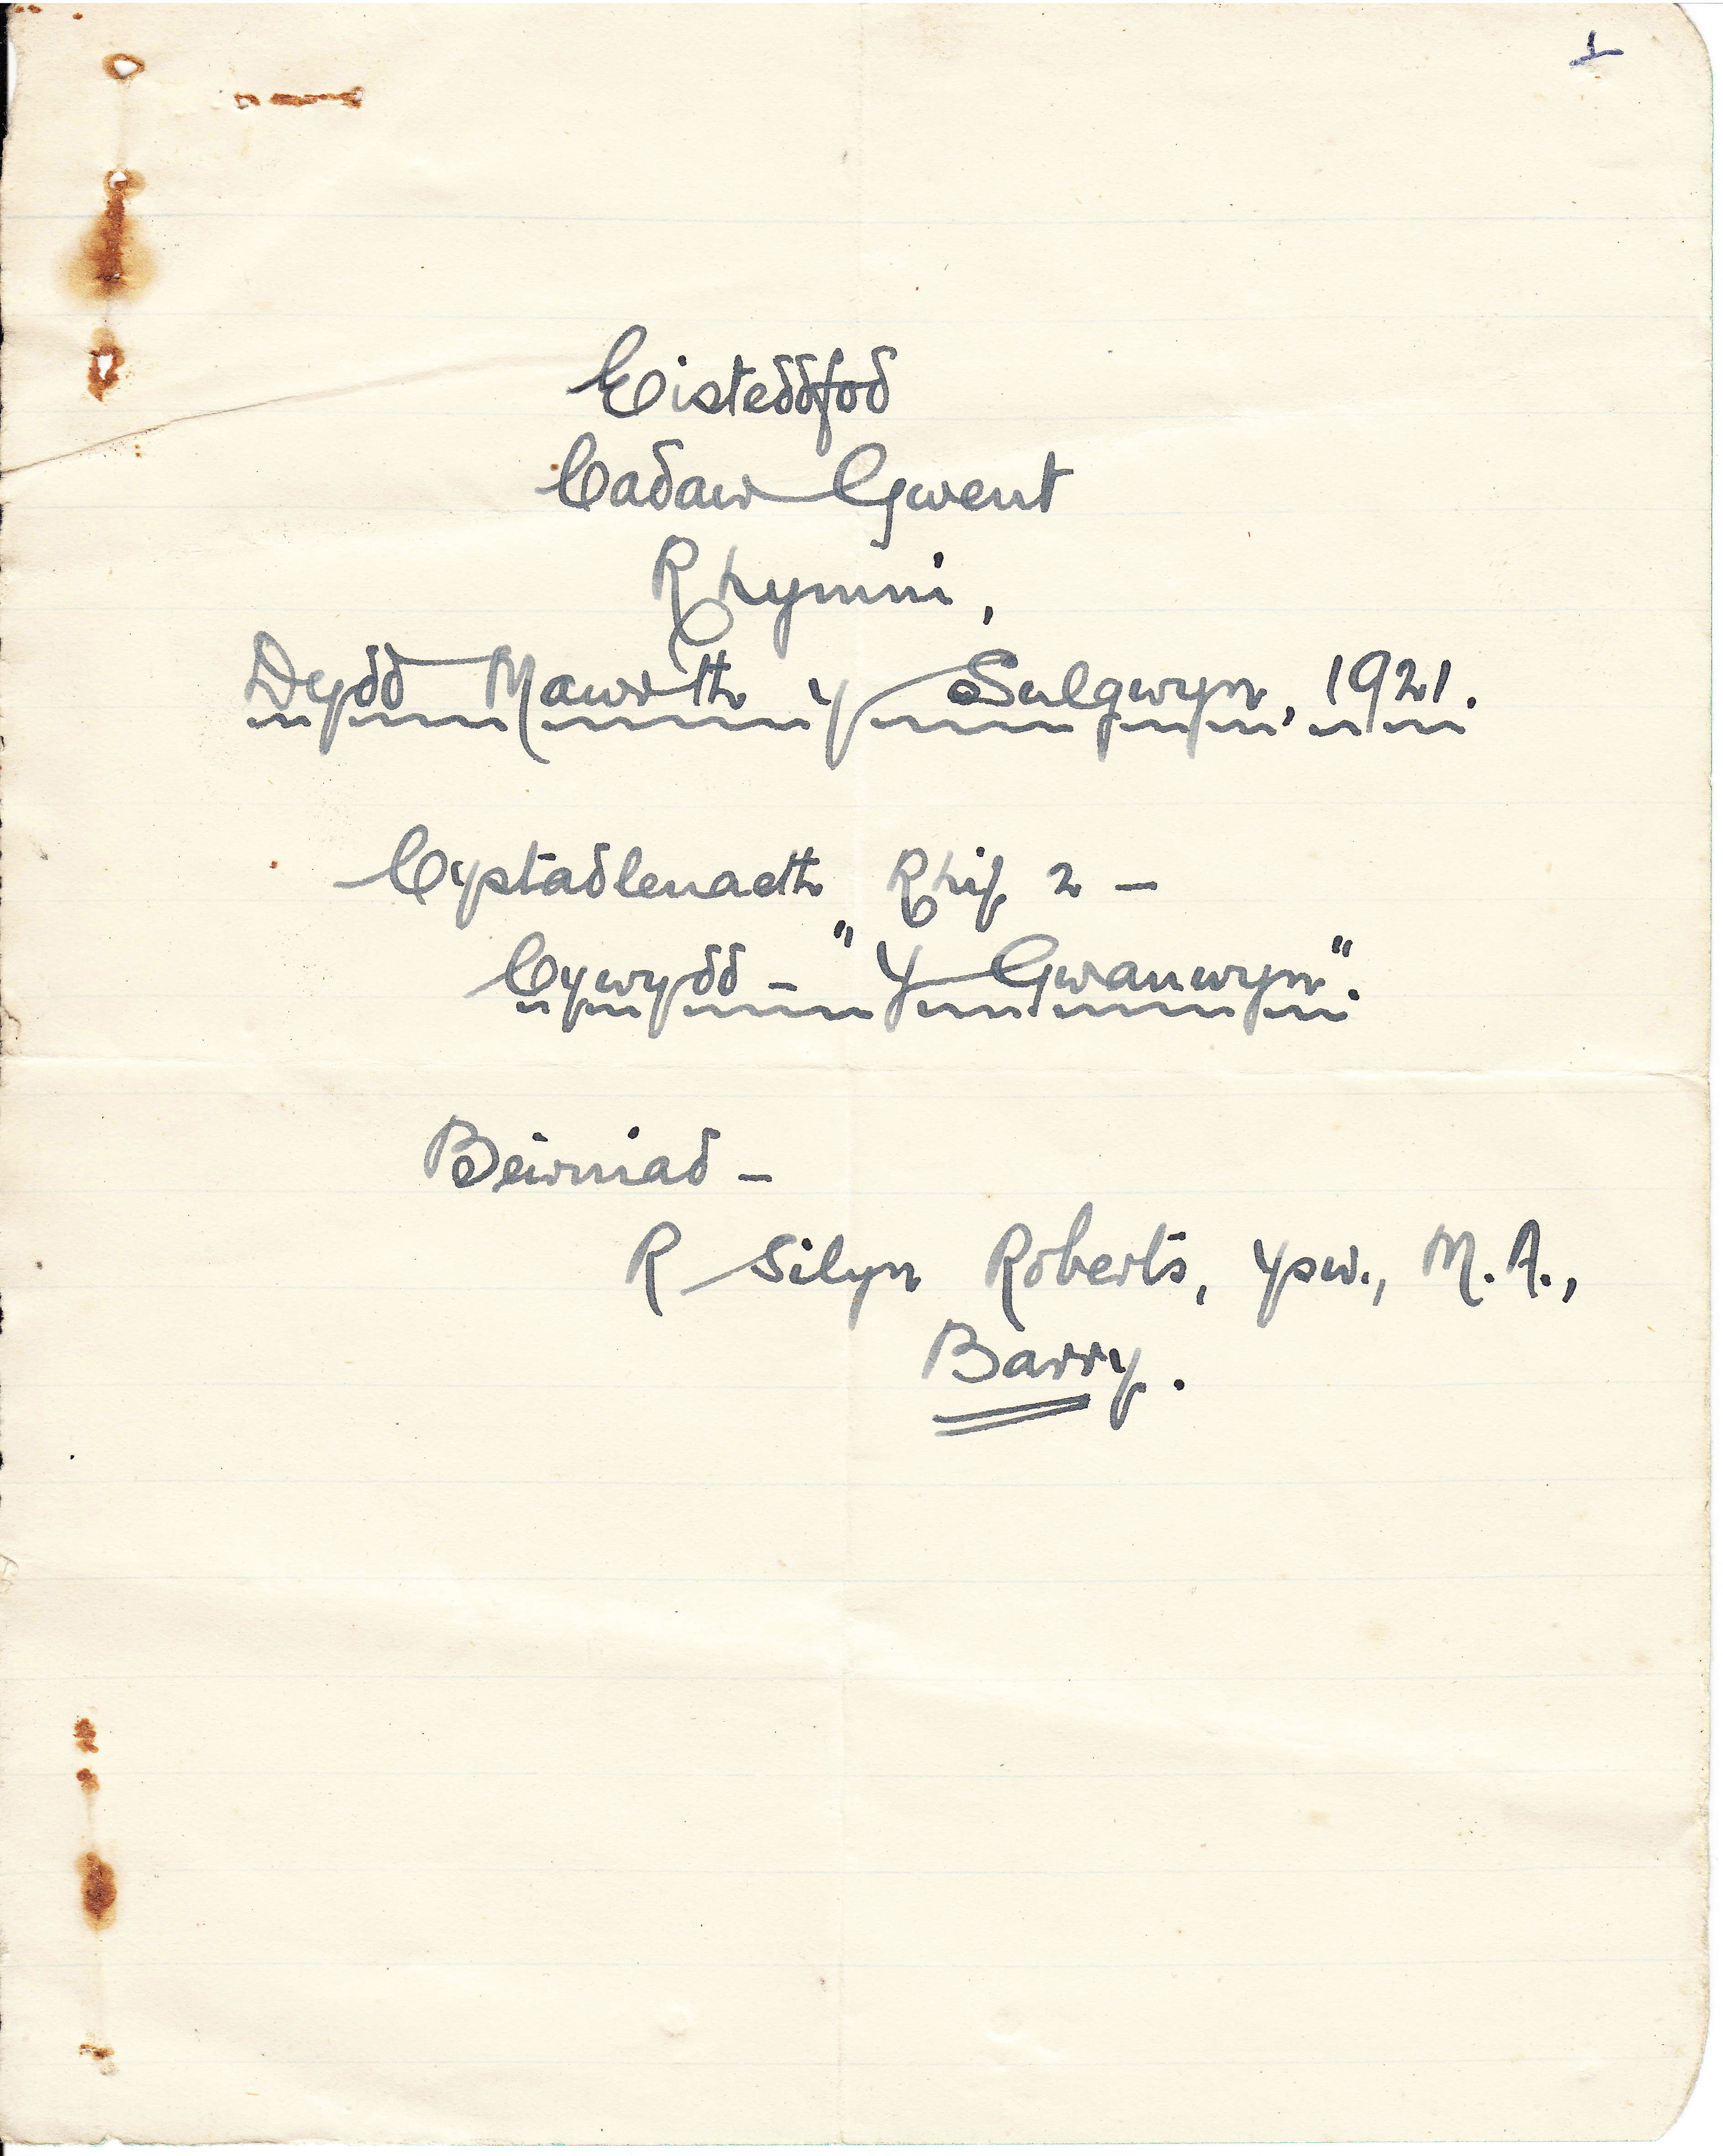 1
Eisteddfod
Cadair Gwent
Rhymni,
Dydd Mawrth y Sulgwyn, 1921.
Cystadlenaeth Rhif 2 —
Cywydd – "Y Gwanwyn".
Beirniad –
R Silyn Roberts, Ysw., M.A.,
Barry.